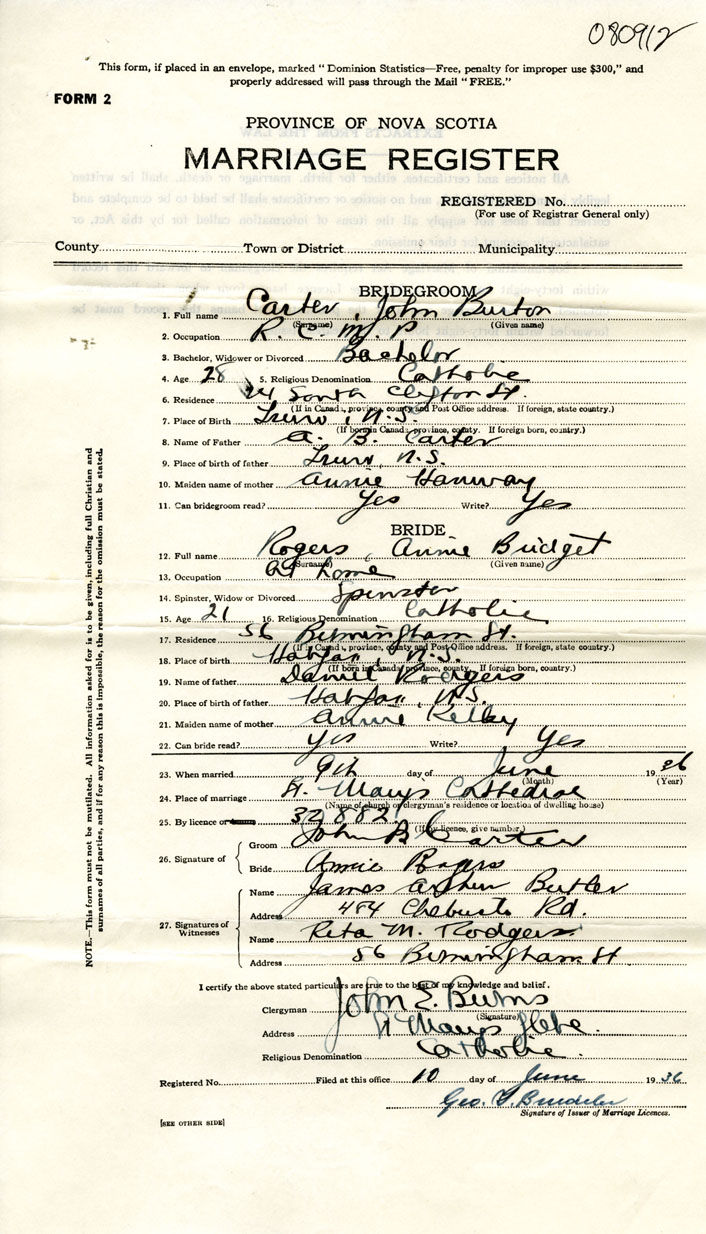 080912
This form, if placed in an envelope, marked "Dominion Statistics—Free, penalty for improper use $300," and
properly addressed will pass through the Mail "FREE."
FORM 2
PROVINCE OF NOVA SCOTIA
MARRIAGE REGISTER
REGISTERED No.
(For use of Registrar General only)
County Town or District Municipality
BRIDEGROOM
1. Full name Carter, John Burton
(Surname) (Given name)
2. Occupation R. C. M. P
3. Bachelor, Widower or Divorced Bachelor
4. Age 28 5. Religious Denomination Catholic
6. Residence 24 South Clifton St.
(If in Canada, province, county and Post Office address. If foreign, state country.)
7. Place of Birth Truro, N.S.
(If born in Canada, province, county. If foreign born, country.)
8. Name of Father A. B. Carter
9. Place of birth of father Truro, N.S.
10. Maiden name of mother Annie Hanway
11. Can bridegroom read? Yes Write? Yes
BRIDE
12. Full name Rogers, Annie Bridget
(Surname) (Given name)
13. Occupation At home
14. Spinster, Widow or Divorced Spinster
15. Age 21 16. Religious Denomination Catholic
17. Residence 56 Birmingham St.
(If in Canada, province, county and Post Office address. If foreign, state country.)
18. Place of birth Halifax, N.S.
(If born in Canada, province, county. If foreign born, country.)
19. Name of father Daniel Rodgers
20. Place of birth of father Halifax, N.S.
21. Maiden name of mother Annie Kelley
22. Can bride read? Yes Write? Yes
23. When married 9th day of June 1936
(Month) (Year)
24. Place of marriage St. Marys Cathedral
(Name of church or clergyman's residence or location of dwelling house)
25. By licence or 32882
(If by licence, give number)
26. Signature of
Groom John B Carter
Bride Annie Rogers
27. Signatures of Witnesses
Name James Arthur Butler
Address 484 Chebucto Rd.
Name Rita M. Rodgers
Address 56 Birmingham St
I certify the above stated particulars are true to the best of my knowledge and belief.
Clergyman John E. Burns
(Signature)
Address St Marys Glebe.
Religious Denomination Catholic.
Registered No. Filed at this office 10 day of June 1936
Geo.
Signature of Issuer of Marriage Licences.
[SEE OTHER SIDE]
NOTE.—This form must not be mutilated. All information asked for is to be given, including full Christian and
surnames of all parties, and if for any reason this is impossible, the reason for the omission must be stated.